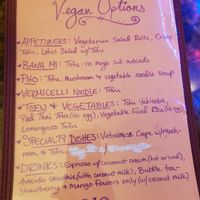 Vegan Options
• APPETIZERS: Vegetarian Salad Rolls, Crispy
Tofu, Lotus Salad w/ Tofu
• BANH MI: Tofu - no mayo sub avocado
• PHO: Tofu, Mushroom & vegetable noodle soup
• VERMICELLI NOODLE: Tofu
• TOFU & VEGETABLES: Tofu Yakisoba,
Pad Thai Tofu (no egg), Vegetable Fried Rice (no egg),
Lemongrass Tofu
• SPECIALTY DISHES: Vietnamese Crepe w/ Mush-
room & Tofu
• DRINKS: Espresso w/ coconut cream (hot or iced),
Avocado Smoothie (with coconut milk), Bubble tea-
Strawberry & Mango flavors only (w/ coconut milk)